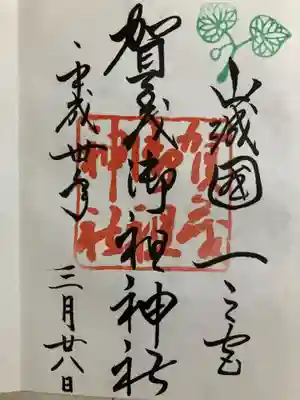 山城國一之宮
賀茂御祖神社
平成丗年
三月廿八日
賀茂
御祖
神社